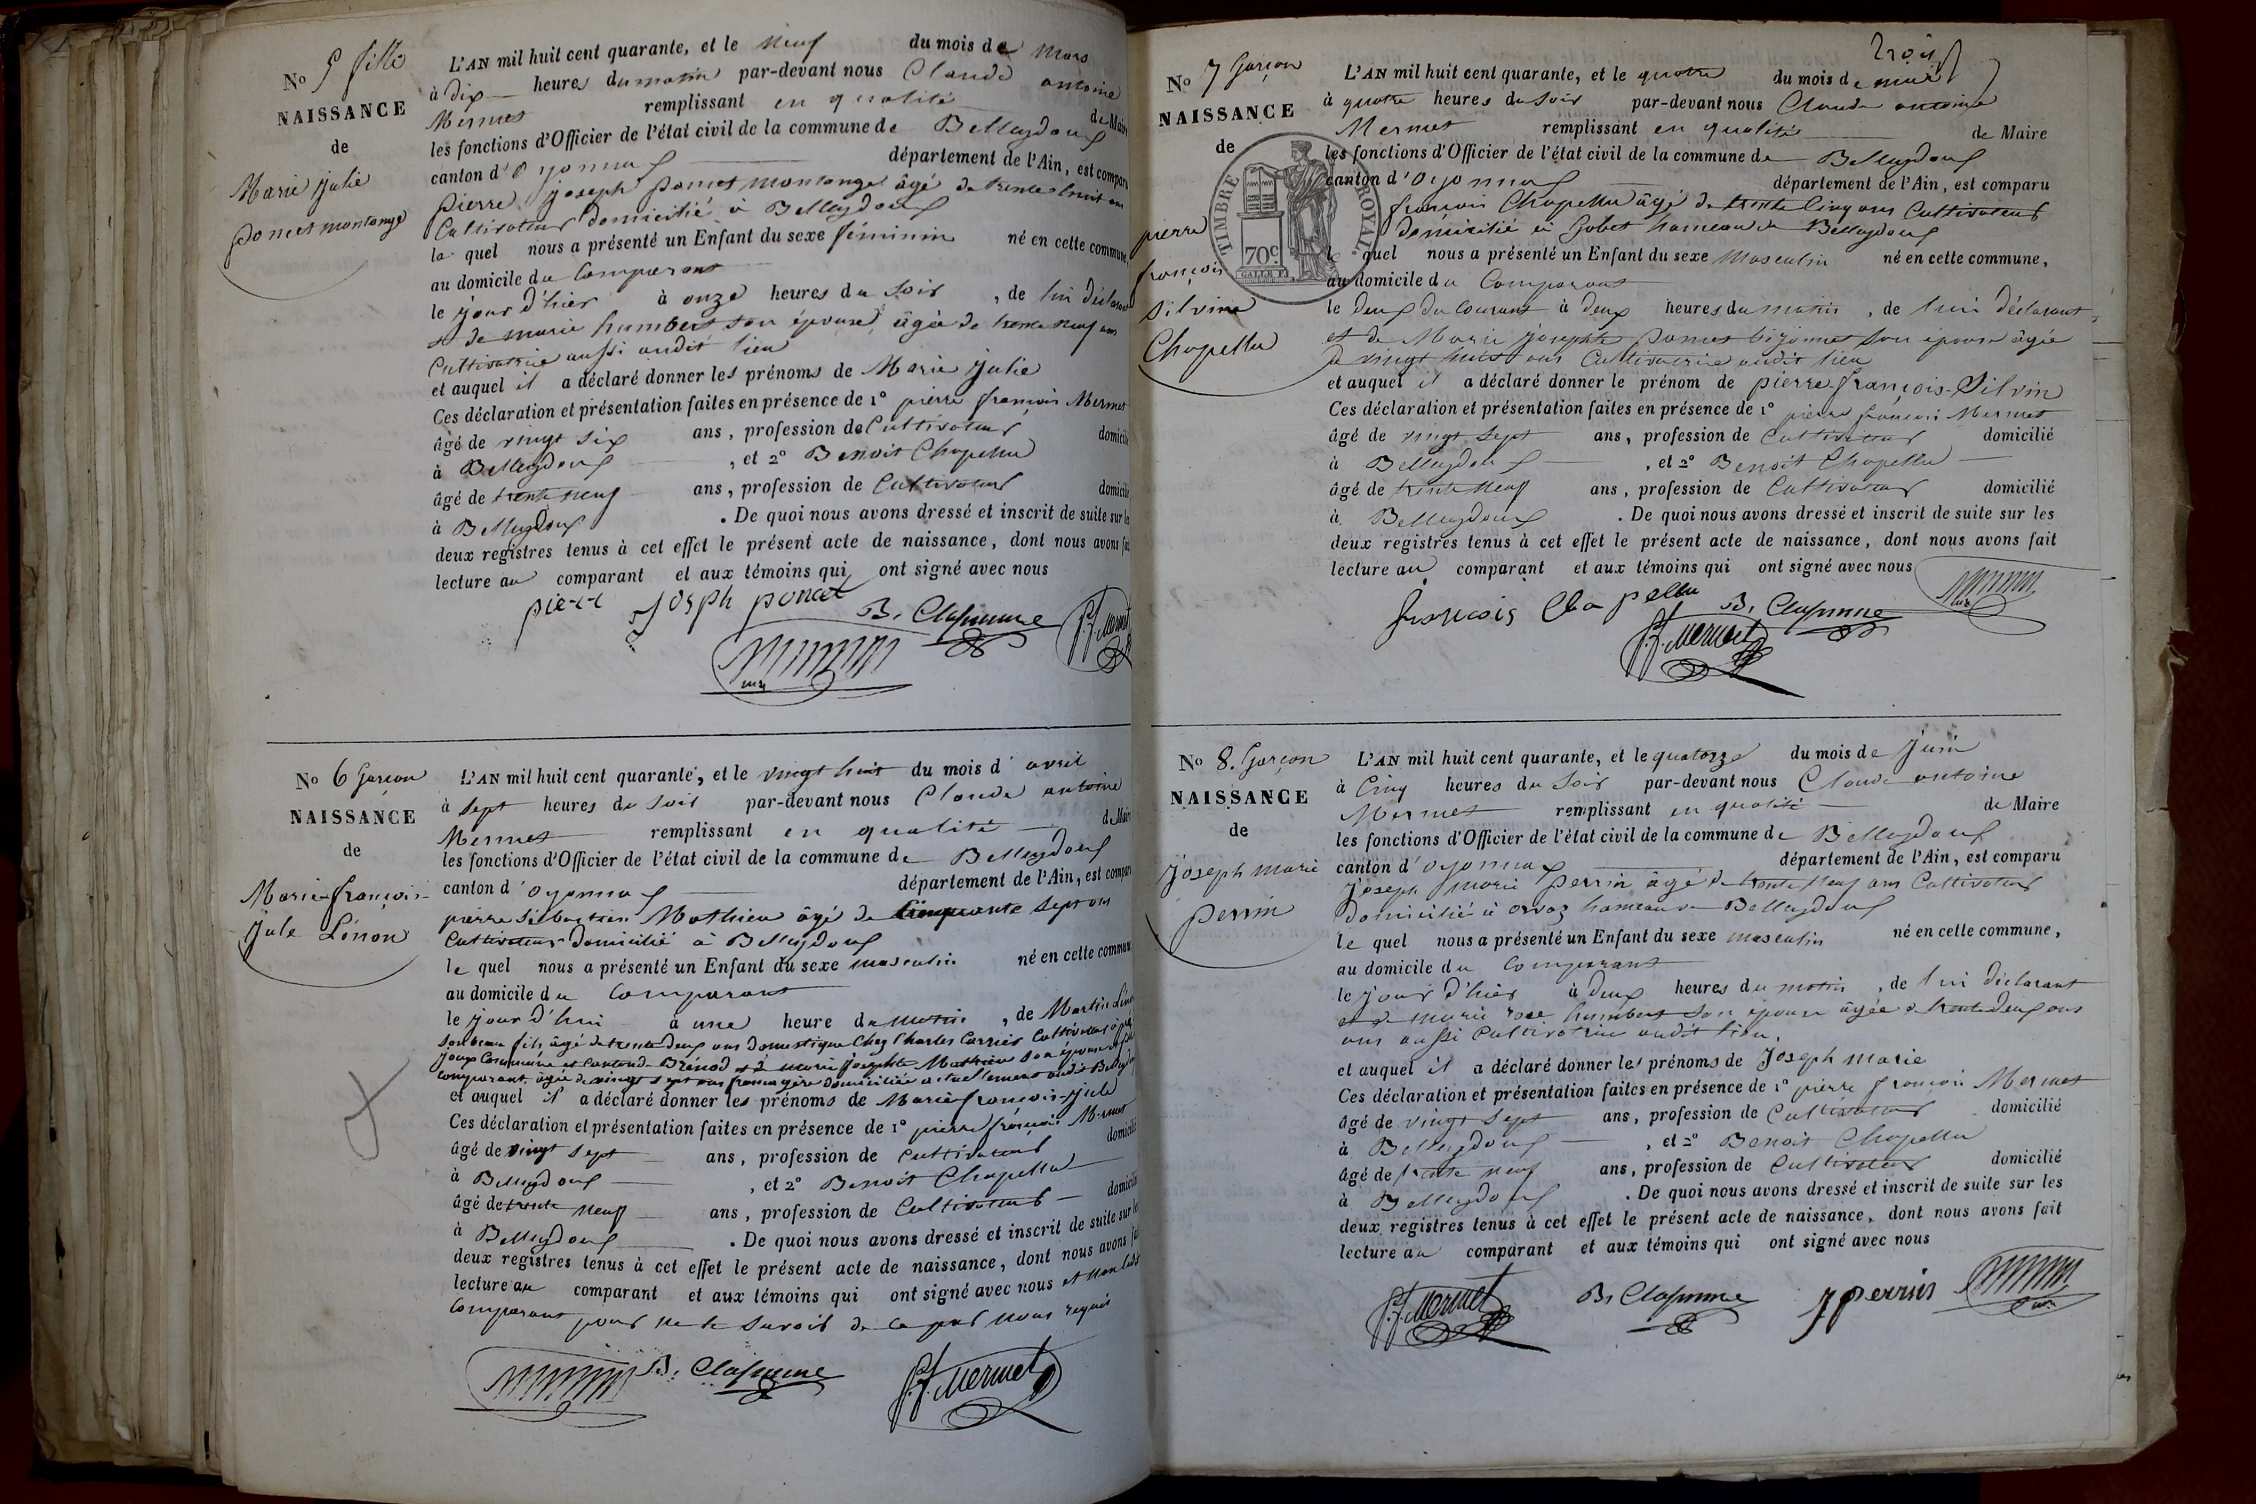 No 5 fille
NAISSANCE
de
Marie julie
poncet montange
L'AN mil huit cent quarante, et le neuf du mois de mars
à dix heures du matin par-devant nous Claude antoine
Mermet remplissant en qualité de Maire
les fonctions d'Officier de l'état civil de la commune de Belleydoux
canton d'oyonnax département de l'Ain, est comparu
pierre joseph poncet montange âgé de trente huit ans
Cultivateur domicilié à Belleydoux
le quel nous a présenté un Enfant du sexe féminin né en cette commune,
au domicile du Comparant
le jour d'hier à onze heures du soir, de lui déclarant
et de marie humbert son épouse, âgée de trente neuf ans
Cultivatrice aussi audit lieu
et auquel il a déclaré donner les prénoms de Marie julie
Ces déclaration et présentation faites en présence de 1° pierre françois Mermet
âgé de vingt six ans, profession de Cultivateur domicilié
à Belleydoux, et 2° Benoit Chapellu
âgé de trente neuf ans, profession de Cultivateur domicilié
à Belleydoux. De quoi nous avons dressé et inscrit de suite sur les
deux registres tenus à cet effet le présent acte de naissance, dont nous avons fait
lecture au comparant et aux témoins qui ont signé avec nous
pierre joseph poncet B. Clapunne P.f. Mermet
No 6 Garçon
NAISSANCE
de
Marie françois
jule Linon
L'AN mil huit cent quarante, et le vingt huit du mois d'avril
à sept heures du soir par-devant nous Claude antoine
Mermet remplissant en qualité de Maire
les fonctions d'Officier de l'état civil de la commune de Belleydoux
canton d'oyonnax département de l'Ain, est comparu
pierre sébastien Mathieu âgé de cinquante sept ans
Cultivateur domicilié à Belleydoux
le quel nous a présenté un Enfant du sexe masculin né en cette commune
au domicile du Comparant
le jour d'hui à une heure du matin, de Martin Linon
son beau fils âgé de trente deux ans domestique Chez Charles Carrier Cultivateur à
joux Commune et Canton de Brénod et de marie josephte Mathieu son épouse et fille
comparant, âgée de vingt sept ans fromagère domiciliée actuellement audit Belleydoux
et auquel il a déclaré donner les prénoms de Marie françois-jule
Ces déclaration et présentation faites en présence de 1° pierre françois Mermet
âgé de vingt sept ans, profession de Cultivateur domicilié
à Belleydoux, et 2° Benoit Chapellu
âgé de trente neuf ans, profession de Cultivateur domicilié
à Belleydoux. De quoi nous avons dressé et inscrit de suite sur les
deux registres tenus à cet effet le présent acte de naissance, dont nous avons fait
lecture au comparant et aux témoins qui ont signé avec nous et non ledit
Comparant pour ne le savoir de ce par nous requis
B. Clapunne P.f. Mermet
trois
No 7 Garçon
NAISSANCE
de
pierre
françois
silvin
Chapellu
TIMBRE ROYAL
70c
L'AN mil huit cent quarante, et le quatre du mois de mai
à quatre heures du soir par-devant nous Claude antoine
Mermet remplissant en qualité de Maire
les fonctions d'Officier de l'état civil de la commune de Belleydoux
canton d'oyonnax département de l'Ain, est comparu
françois Chapellu âgé de trente Cinq ans Cultivateur
domicilié à Gobet hameau de Belleydoux
le quel nous a présenté un Enfant du sexe Masculin né en cette commune,
au domicile du Comparant
le deux du Courant à deux heures du matin, de lui déclarant
et de Marie josephte poncet bijonnet son épouse âgée
de vingt huit ans Cultivatrice audit lieu
et auquel il a déclaré donner le prénom de pierre-françois-Silvin
Ces déclaration et présentation faites en présence de 1° pierre françois Mermet
âgé de vingt sept ans, profession de Cultivateur domicilié
à Belleydoux, et 2° Benoit Chapellu
âgé de trente neuf ans, profession de Cultivateur domicilié
à Belleydoux. De quoi nous avons dressé et inscrit de suite sur les
deux registres tenus à cet effet le présent acte de naissance, dont nous avons fait
lecture au comparant et aux témoins qui ont signé avec nous
francois Chapellu B. Clapunne
P.f. Mermet
No 8. Garçon
NAISSANCE
de
joseph marie
perrin
L'AN mil huit cent quarante, et le quatorze du mois de juin
à Cinq heures du soir par-devant nous Claude antoine
Mermet remplissant en qualité de Maire
les fonctions d'Officier de l'état civil de la commune de Belleydoux
canton d'oyonnax département de l'Ain, est comparu
joseph marie perrin âgé de trente neuf ans Cultivateur
domicilié à orvaz hameau de Belleydoux
le quel nous a présenté un Enfant du sexe masculin né en cette commune,
au domicile du Comparant
le jour d'hier à deux heures du matin, de lui déclarant
et de marie rose humbert son épouse âgée de trente deux ans
ans aussi Cultivatrice audit lieu.
et auquel il a déclaré donner les prénoms de joseph marie
Ces déclaration et présentation faites en présence de 1° pierre françois Mermet
âgé de vingt sept ans, profession de Cultivateur domicilié
à Belleydoux, et 2° Benoit Chapellu
âgé de trente neuf ans, profession de Cultivateur domicilié
à Belleydoux. De quoi nous avons dressé et inscrit de suite sur les
deux registres tenus à cet effet le présent acte de naissance, dont nous avons fait
lecture au comparant et aux témoins qui ont signé avec nous
P.f. Mermet B. Clapunne J perrin